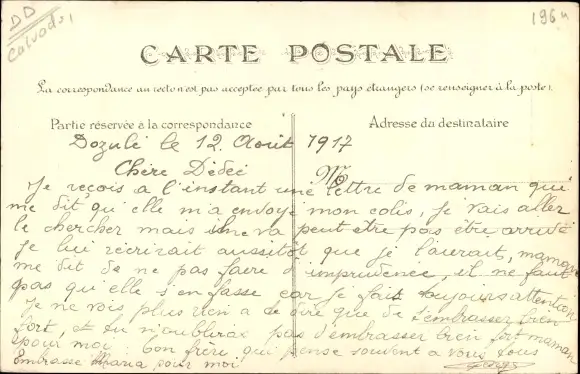 DD
Calvados
196
CARTE POSTALE
La correspondance au recto n'est pas acceptée par tous les pays étrangers (se renseigner à la poste).
Partie réservée à la correspondance
Adresse du destinataire
Dozulé le 12 Août 1917
Chère Dédée
M
Je reçois a l'instant une lettre de maman qui
me dit qu'elle m'a envoyé mon colis, je vais aller
le chercher mais il ne va peut être pas être arrivé
je lui récrirait aussitôt que je l'aurait, maman
me dit de ne pas faire d'imprudence, il ne faut
pas qu'elle s'en fasse car je fais toujours attention
Je ne vois plus rien a te dire que de t'embrasser bien
fort, et tu n'oublieras pas d'embrasser bien fort maman
pour moi. ton frère qui pense souvent a vous tous
Embrasse Maria pour moi